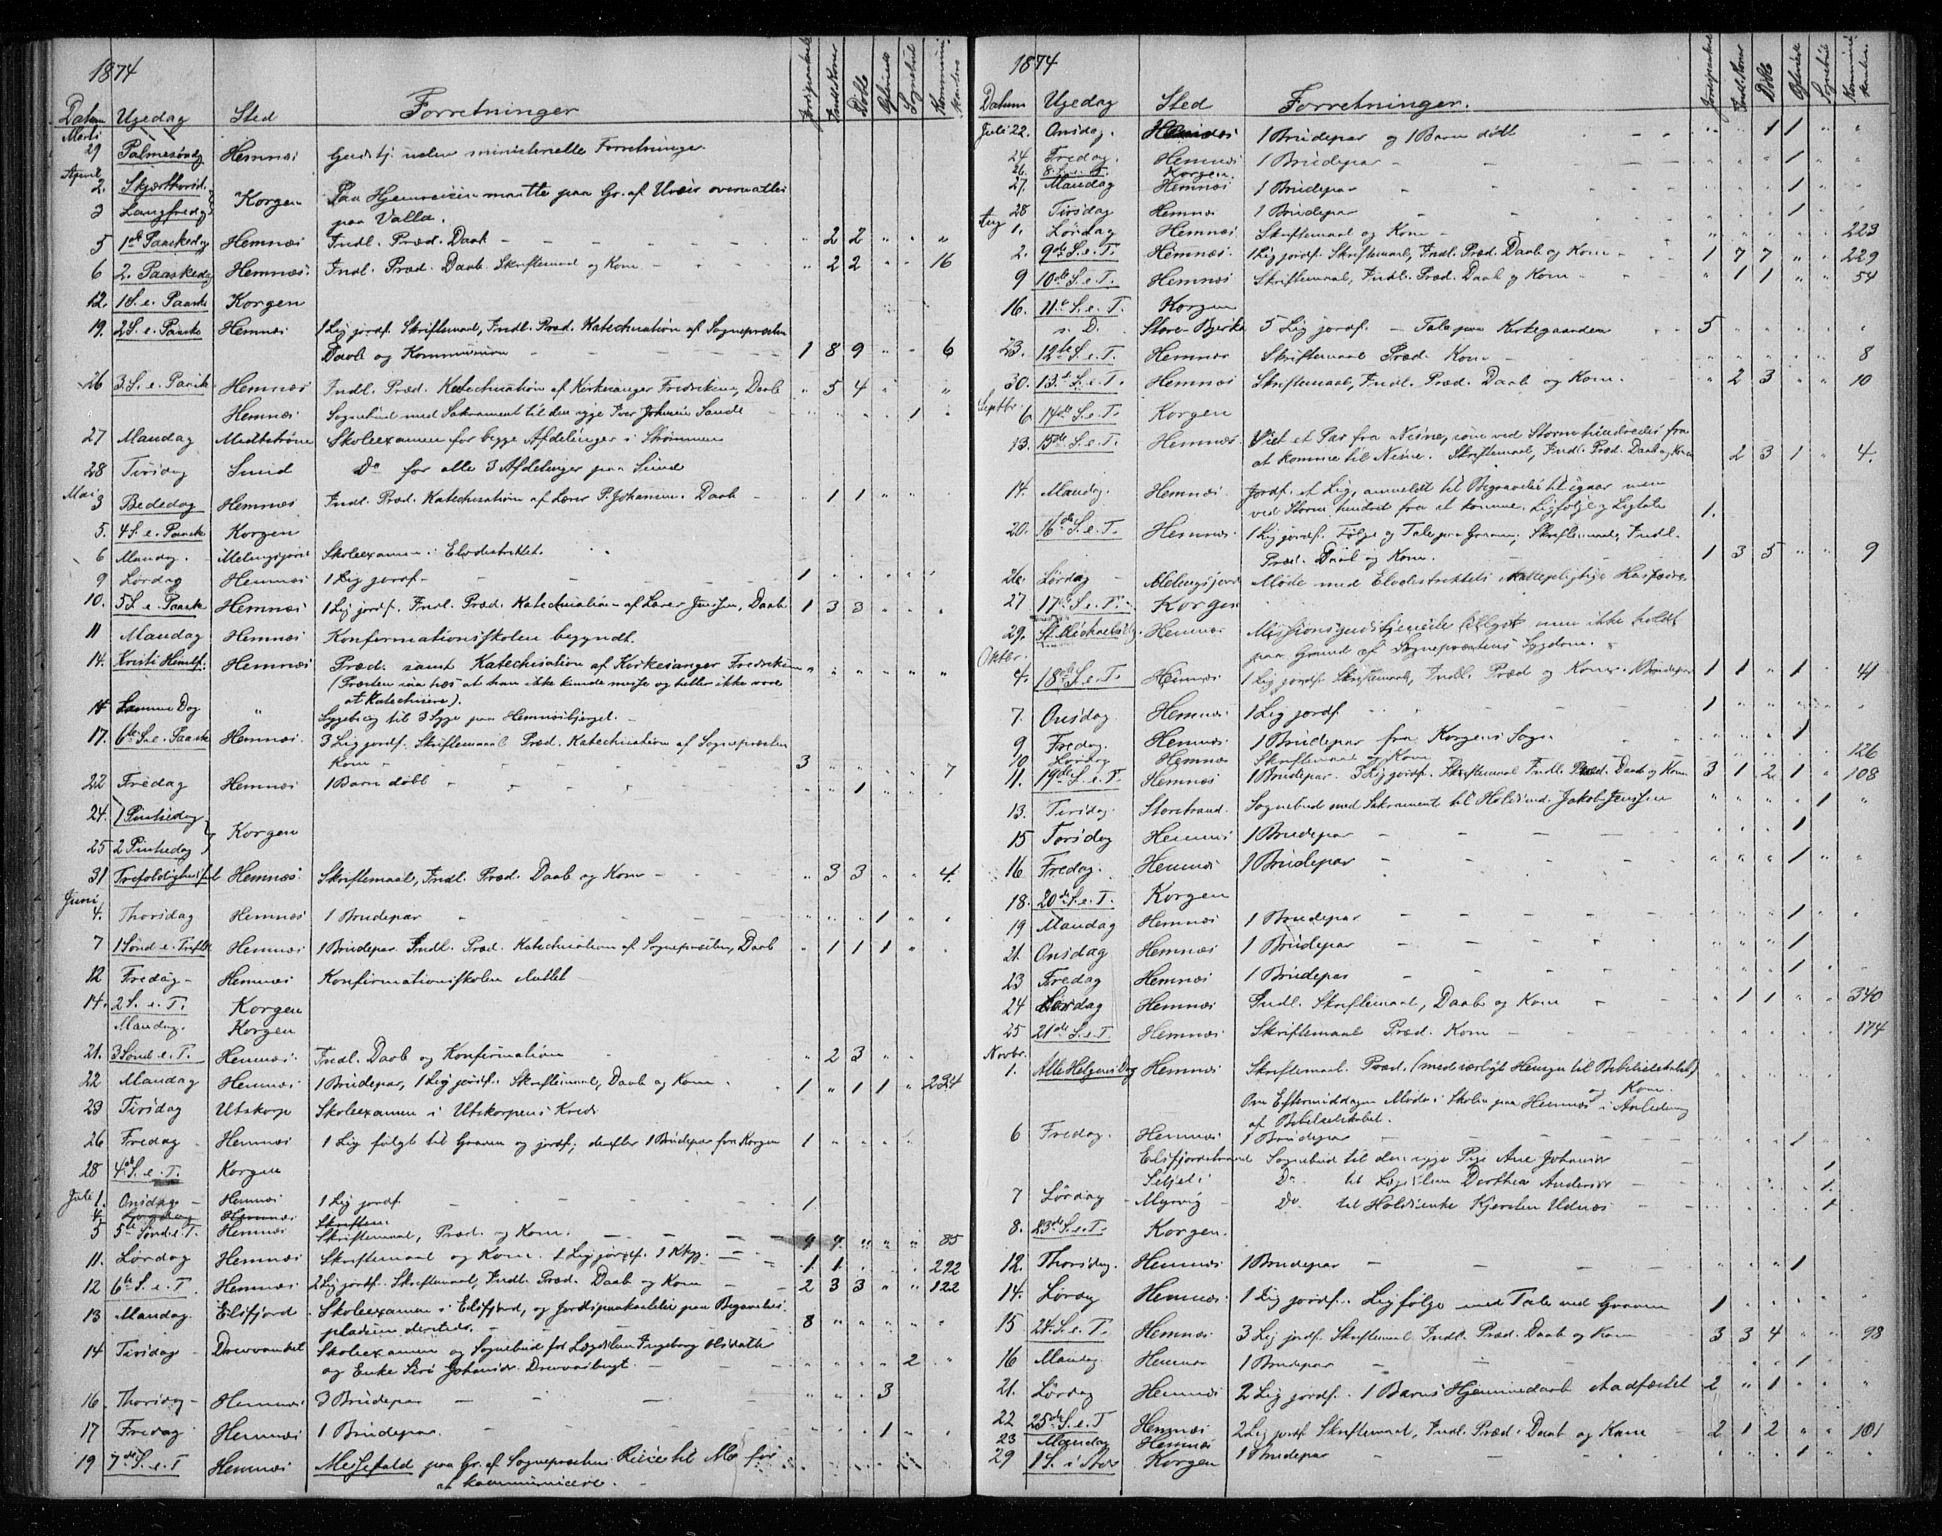 1874
Datum Ugedag Sted Forretninger Jordspaakastelse Indl. Koner Døbte Egteviede Sognebud Kommunikanter
Marti
29 Palmesøndg Hemnæs Gudstj. uden ministerielle Forretninger.
April
2. Skjærthorsd. Korgen Paa Hjemreisen maatte paa Gr. af Uveir overnattes
3 Langfredg paa Valla.
5 1ste Paaskedg Hemnæs Indl. Præd. Daab - - - - - " 2 2 " " "
6 2. Paaskedag Hemnæs. Indl. Præd. Daab. Skriftemaal og Kom. - - " 2 2 " " 16
12. 1 S. e. Paaske Korgen
19. 2 S. e. Paaske Hemnæs 1 Lig jordf. Skriftemaal, Indl. Præd. Katechisation af Sognepræsten
Daab og Kommunion - - - - - 1 8 9 " " 6
26 3. S. e. Paaske Hemnæs Indl. Præd. Katechisation af Kirkesanger Fredriksen, Daab " 5 4 " " "
Hemnæs Sognebud med Sakrament til den syge Iver Johnsen Sande - " " " " 1 "
27 Mandag Skoleexamen for begge Afdelinger i Strømmen
28 Tirsdag Sund Do for alle 3 Afdelinger paa Sund
Mai
3 Bededag Hemnæs Indl. Præd. Katechisation af Lærer P. Johansen. Daab - " 1 1 " "
5. 4 S. e. Paaske Korgen
6 Mandag. Skoleexamen i
9 Lørdag Hemnæs 1 Lig jordf. - - - - - 1 " " " " "
10. 5 S. e. Paaske Hemnæs 1 Lig jordf. Indl. Præd. Katechisation af Lærer Jenssen, Daab 1 3 3 " " "
11 Mandag Hemnæs Konfirmationsskolen begyndt.
14. Kristi Himlf. Hemnæs Præd. samt Katechisation af Kirkesanger Fredriksen " " " " " "
(Præsten saa hæs at han ikke kunde messe og heller ikke være
at Katechisere).
14 Samme Dag " Sygebesøg til 3 Syge paa Hemnæsbjerget. -
17. 6te S. e. Paaske Hemnæs. 3 Lig jordf. Skriftemaal Præd. Katechisation af Sognepræsten
Kom - - - - - 3 " " " " 7
22 Fredag Hemnæs 1 Barn døbt - - - - " " 1 " " "
24. 1 Pintsedag Korgen
25 2 Pintsedag
31 Trefoldighedsf. Hemnæs. Skriftemaal, Indl. Præd. Daab og Kom - - - " 3 3 " " 4.
Juni
4. Thorsdag Hemnæs 1 Brudepar - - - " " " 1 " "
7 1 Sønd. e. Trefld. Hemnæs 1 Brudepar. Indl. Præd. Katechisation af Sognepræsten, Daab " 1 1 1 " "
12 Fredag - Hemnæs Konfirmationsskolen sluttet
14. 2 S. e. T. Korgen
Mandag. Korgen
21. 3 Sønd. e. T. Hemnæs. Indl. Daab og Konfirmation " 2 3 " "
22 Mandag Hemnæs 1 Brudepar, 1 Lig jordf. Skriftemaal, Daab og Kom - 1 " 1 1 " 234
23 Tirsdag Utskorpe Skoleexamen i Utskorpens Kreds
26 Fredag - Hemnæs 1 Lig fulgt til Graven og jordf., derefter 1 Brudepar fra Korgen 1 " " " "
28 4de S. e. T. Korgen
Juli 1. Onsdag - Hemnæs 1 Lig jordf - - - 1
4. Lørdag Hemnæs Skriftem.
5 5te Sønd. e. T. Hemnæs Skriftemaal, Præd. og Kom. - - " " " " 85
11. Lørdag Hemnæs Skriftemaal og Kom. 1 Lig jordf. - - 1 1 " " " 292
12 6te S. e. T. Hemnæs 2 Lig jordf. Skriftemaal, Indl. Præd. Daab og Kom - 2 3 3 " " 122
13 Mandag. Elsfjord - Skoleexamen i Elsfjord, og Jordspaakastelse paa Begravelses-
pladsen dersteds. - - 8 " " " " "
14 Tirsdag - Drevvandet Skoleexamen og Sognebud for Lægdslem Ingeborg Olsdatter
og Enke Siri Johansd. . - - " " " " 2 "
16 Thorsdag - Hemnæs 3 Brudepar - - - " " " 3
17 Fredag Hemnæs 1 Brudepar. - - - " " " 1 " "
19 7de S. e. T Hemnæs Messefald paa Gr. af Sognepræstens Reise til Mo for
at kommunicere. -
1874
Datum Ugedag Sted Forretninger. Jordspaakastelse Indl. Koner Døbte Egteviede Sognebud Kommunikanter.
Juli 22. Onsdag. Hemnæs 1 Brudepar og 1 Barn døbt - - " " 1 1 " "
24 Fredag. Hemnæs 1 Brudepar - - - " " " 1 " "
26. 8. S. e. T. Korgen.
27. Mandag Hemnæs 1 Brudepar - - - " " " 1 " "
28 Tirsdag Hemnæs 1 Brudepar - - - " " " 1 "
Aug 1. Lørdag Hemnæs Skriftemaal og Kom - - " " " " " 223
2. 9de S. e. T. Hemnæs. 1 Lig jordf. Skriftemaal, Indl. Præd. Daab og Kom - 1 7 7 " " 229
9 10de S. e. T. Hemnæs Skriftemaal, Indl. Præd. Daab og Kom - - " 1 1 " " 54
16. 11te S. e. T. Korgen
s. D. Store Bjerka 5 Lig jordf. - Tale paa Kirkegaarden - - 5 " " " " "
23. 12te S. e. T. Hemnæs Skriftemaal Præd. Kom - - - " " " " " 8
30. 13de S. e. T. Hemnæs Skriftemaal, Indl. Præd. Daab og Kom. - " 2 3 " " 10
Septbr. 6. 14de S. e. T. Korgen
13. 15de S. e. T. Hemnæs. Viet et Par fra Nesne, som ved Storm hindredes fra
at komme til Nesne. Skriftemaal, Indl. Præd. Daab og Kom 2 3 1 " 4.
14. Mandag. Hemnæs. Jordf. et Lig, anmeldt til Begravelse til igaar men
ved Storm hindret fra at komme. Ligfølge og Ligtale 1.
20. 16de S. e. T. Hemnæs 1 Lig jordf. Følge og Tale paa Graven, Skriftemaal, Indl.
Præd. Daab og Kom. - - 1 3 5 " " 9
26. Lørdag - Møde med
27 17de S. e. T. - Korgen
29. St. Michaelsdg. Hemnæs Missionsgudstjeneste men ikke holdt
paa Grund af Sognepræstens Sygdom. -
Oktbr. 4. 18de S. e. T. Hemnæs 1 Lig jordf. Skriftemaal, Indl. Præd og Kom. 1 Brudepar 1 1 " 1 " 41
7. Onsdag Hemnæs 1 Lig jordf. - - - 1 " " " " "
9 Fredag. Hemnæs 1 Brudepar fra Korgens Sogn - " " " 1
10 Lørdag Hemnæs Skriftemaal og Kom - - " " " " " 126
11. 19de S. e. T Hemnæs 1 Brudepar. 3 Lig jordf. Skriftemaal Indl. Præd. Daab og Kom 3 1 2 1 " 108
13. Tirsdag. Storstrand. Sognebud med Sakrament til Jakob Jenssen " " " " 1 "
15 Torsdag Hemnæs 1 Brudepar - - - " " " 1
16 Fredag. Hemnæs 1 Brudepar - - - " " " 1 " "
18. 20de S. e. T. Korgen
19 Mandag Hemnæs 1 Brudepar - - - " " " 1 "
21. Onsdag Hemnæs 1 Brudepar - - - " " " 1
23 Fredag Hemnæs 1 Brudepar - - - " " " 1 "
24 Lørdag Hemnæs Indl. Skriftemaal, Daab og Kom - - " 1 1 " " 340
25 21de S. e. T. Hemnæs Skriftemaal Præd. Kom - - " " " " " 174
Novbr.
1. Alle Helgens Dag Hemnæs Skriftemaal. Præd. (med særligt Hensyn til Bibelselskabet)
og Kom.
Om Eftermiddagen Møde i Skolen paa Hemnæs i Anledning
af Bibelselskabet.
6 Fredag. Hemnæs 1 Brudepar - - - " " " 1 "
Elsfjordstrand Sognebud til den syge Pige Ane Johansd. - " " " " 1
Do til Lægdslem Dorthea Andersd. - " " " " 1
7 Lørdag - Myrvig - Do til Kjersten Udnæs - - " " " " 1
8. 23de S. e. T. Korgen.
12. Thorsdag. Hemnæs 1 Brudepar - - - " " " 1
14. Lørdag Hemnæs. 1 Lig jordf. Ligfølge med Tale ved Graven 1 " " " " "
15 24. S. e. T. Hemnæs 3 Lig jordf. Skriftemaal Indl. Præd. Daab og Kom - 3 3 4 " " 98
16 Mandag. Hemnæs 1 Brudepar - - - " " " 1 "
21. Lørdag Hemnæs 2 Lig jordf. 1 Barns Hjemmedaab stadfæstet 2 " 1 " " "
22 25de S. e. T Hemnæs 2 Lig jordf Skriftemaal, Indl. Præd. Daab og Kom - 2 1 2 " " 101
23 Mandag Hemnæs 1 Brudepar - - - " " " 1 " "
29 1 S. i Adv Korgen